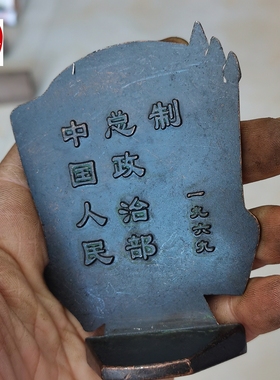 中国人民
总政治部
制
一九六九